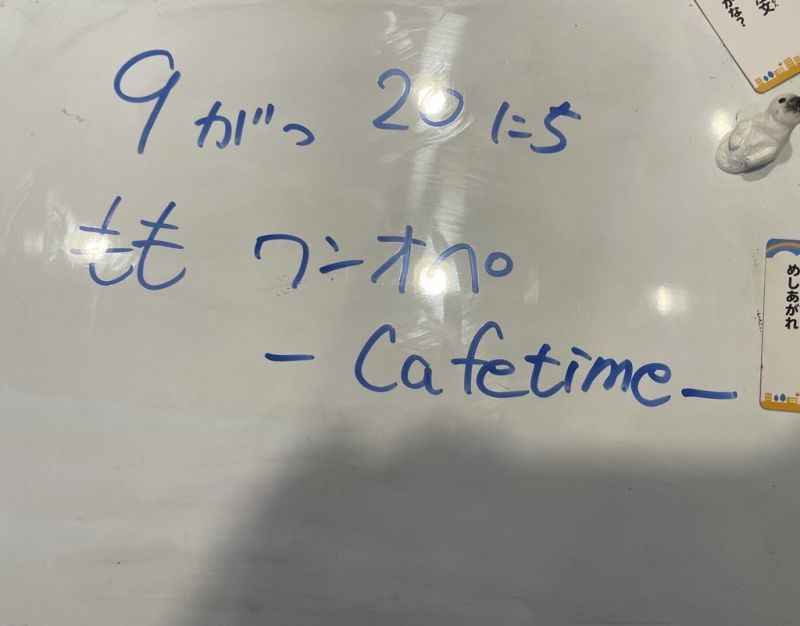 9がつ 20にち
もも ワンオペ
- Cafetime -
かな?
めしあがれ